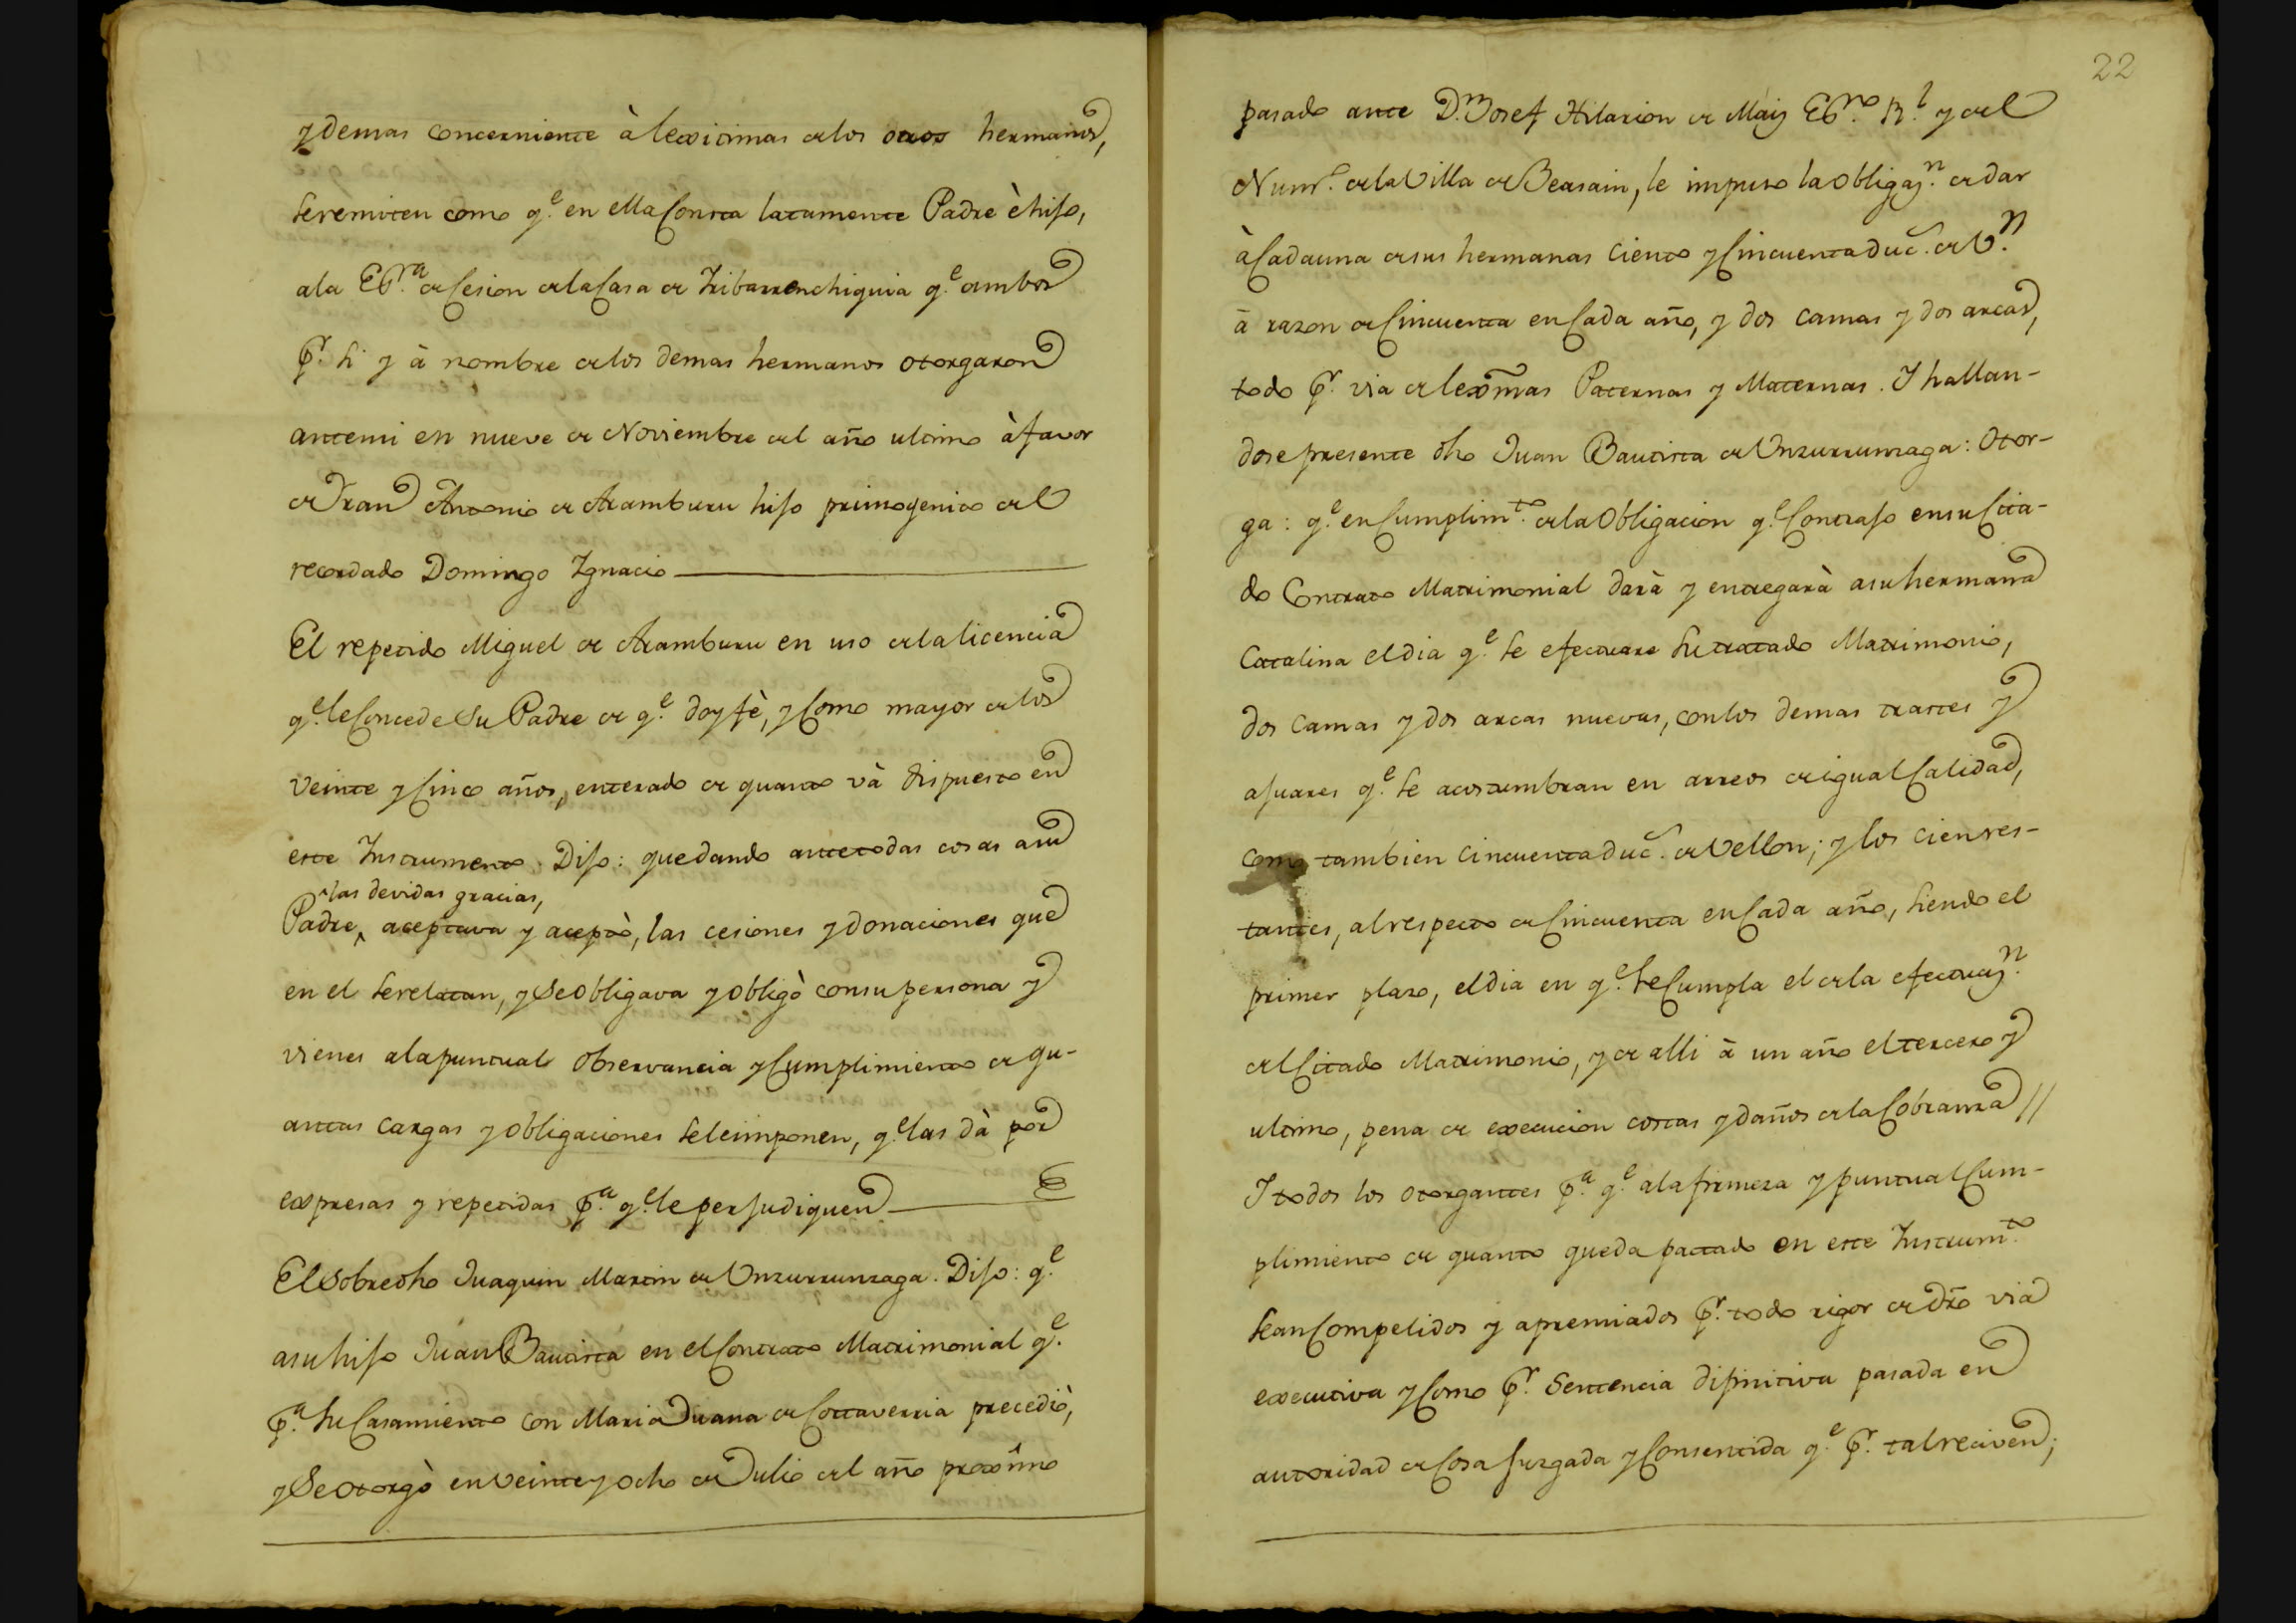 y demas concerniente à lexitimas de los otros hermanos,
se remiten como q.e en ella Consta latamente Padre è hijo,
a la Es.ra de Cesion de la Casa de Iribarrenchiquia q.e ambos
p.r si y à nombre de los demas hermanos otorgaron
ante mi en nueve de Noviembre del año ultimo à favor
de Fran Antonio de Aramburu hijo primogenito del
recordado Domingo Ignacio
El repetido Miguel de Aramburu en uso de la licencia
q.e le Concede Su Padre de q.e doy fè, y Como mayor de los
veinte y Cinco años, enterado de quanto và dispuesto en
este Instrumento. Dijo: quedando ante todas cosas a su
las devidas gracias,
Padre, aceptava y aceptò, las cesiones y donaciones que
en el se relatan, y Se obligava y obligò con su persona y
vienes a la puntual observancia y Cumplimiento de qu-
antas cargas y obligaciones se le imponen, q.e las dà por
expresas y repetidas p.a q.e le perjudiquen
El Sobredho Juaquin Martin de Unzurrunzaga. Dijo: q.e
a su hijo Juan Bautista en el Contrato Matrimonial q.e
p.a su Casamiento con Maria Juana de Gottaverria precediò,
y Se otorgò en veinte y ocho de Julio del año proximo
22
pasado ante D.n Josef Hilarion de Maiz Es.no R.l y del
Num.o de la Villa de Beasain, le impuso la obligaz.n de dar
à Cada una de sus hermanas Ciento y Cincuenta duc.s de V.n
à razon de Cincuenta en Cada año, y dos camas y dos arcas,
todo p.r via de lexmas Paternas y Maternas. Y hallan-
dose presente dho Juan Bautista de Unzurrunzaga: Otor-
ga: q.e en Cumplim.to de la Obligacion q.e Contrajo en su Cita-
do Contrato Matrimonial darà y entregarà a su hermana
Catalina el dia q.e se efectuare su tratado Matrimonio,
dos camas y dos arcas nuevas, con los demas trastes y
ajuares q.e se acostumbran en arreos de igual Calidad,
como tambien cincuenta duc.s de Vellon; y los cien res-
tantes, al respecto de Cincuenta en Cada año, siendo el
primer plazo, el dia en q.e se Cumpla el de la efectuaz.n
del Citado Matrimonio, y de alli à un año el tercero y
ultimo, pena de execucion costas y daños de la Cobranza //
Y todos los otorgantes p.a q.e a la firmeza y puntual Cum-
plimiento de quanto queda pactado en este Instrum.to
sean Compelidos y apremiados p.r todo rigor de dro via
executiva y Como p.r Sentencia difinitiva pasada en
autoridad de Cosa Juzgada y Consentida q.e p.r tal reciven;